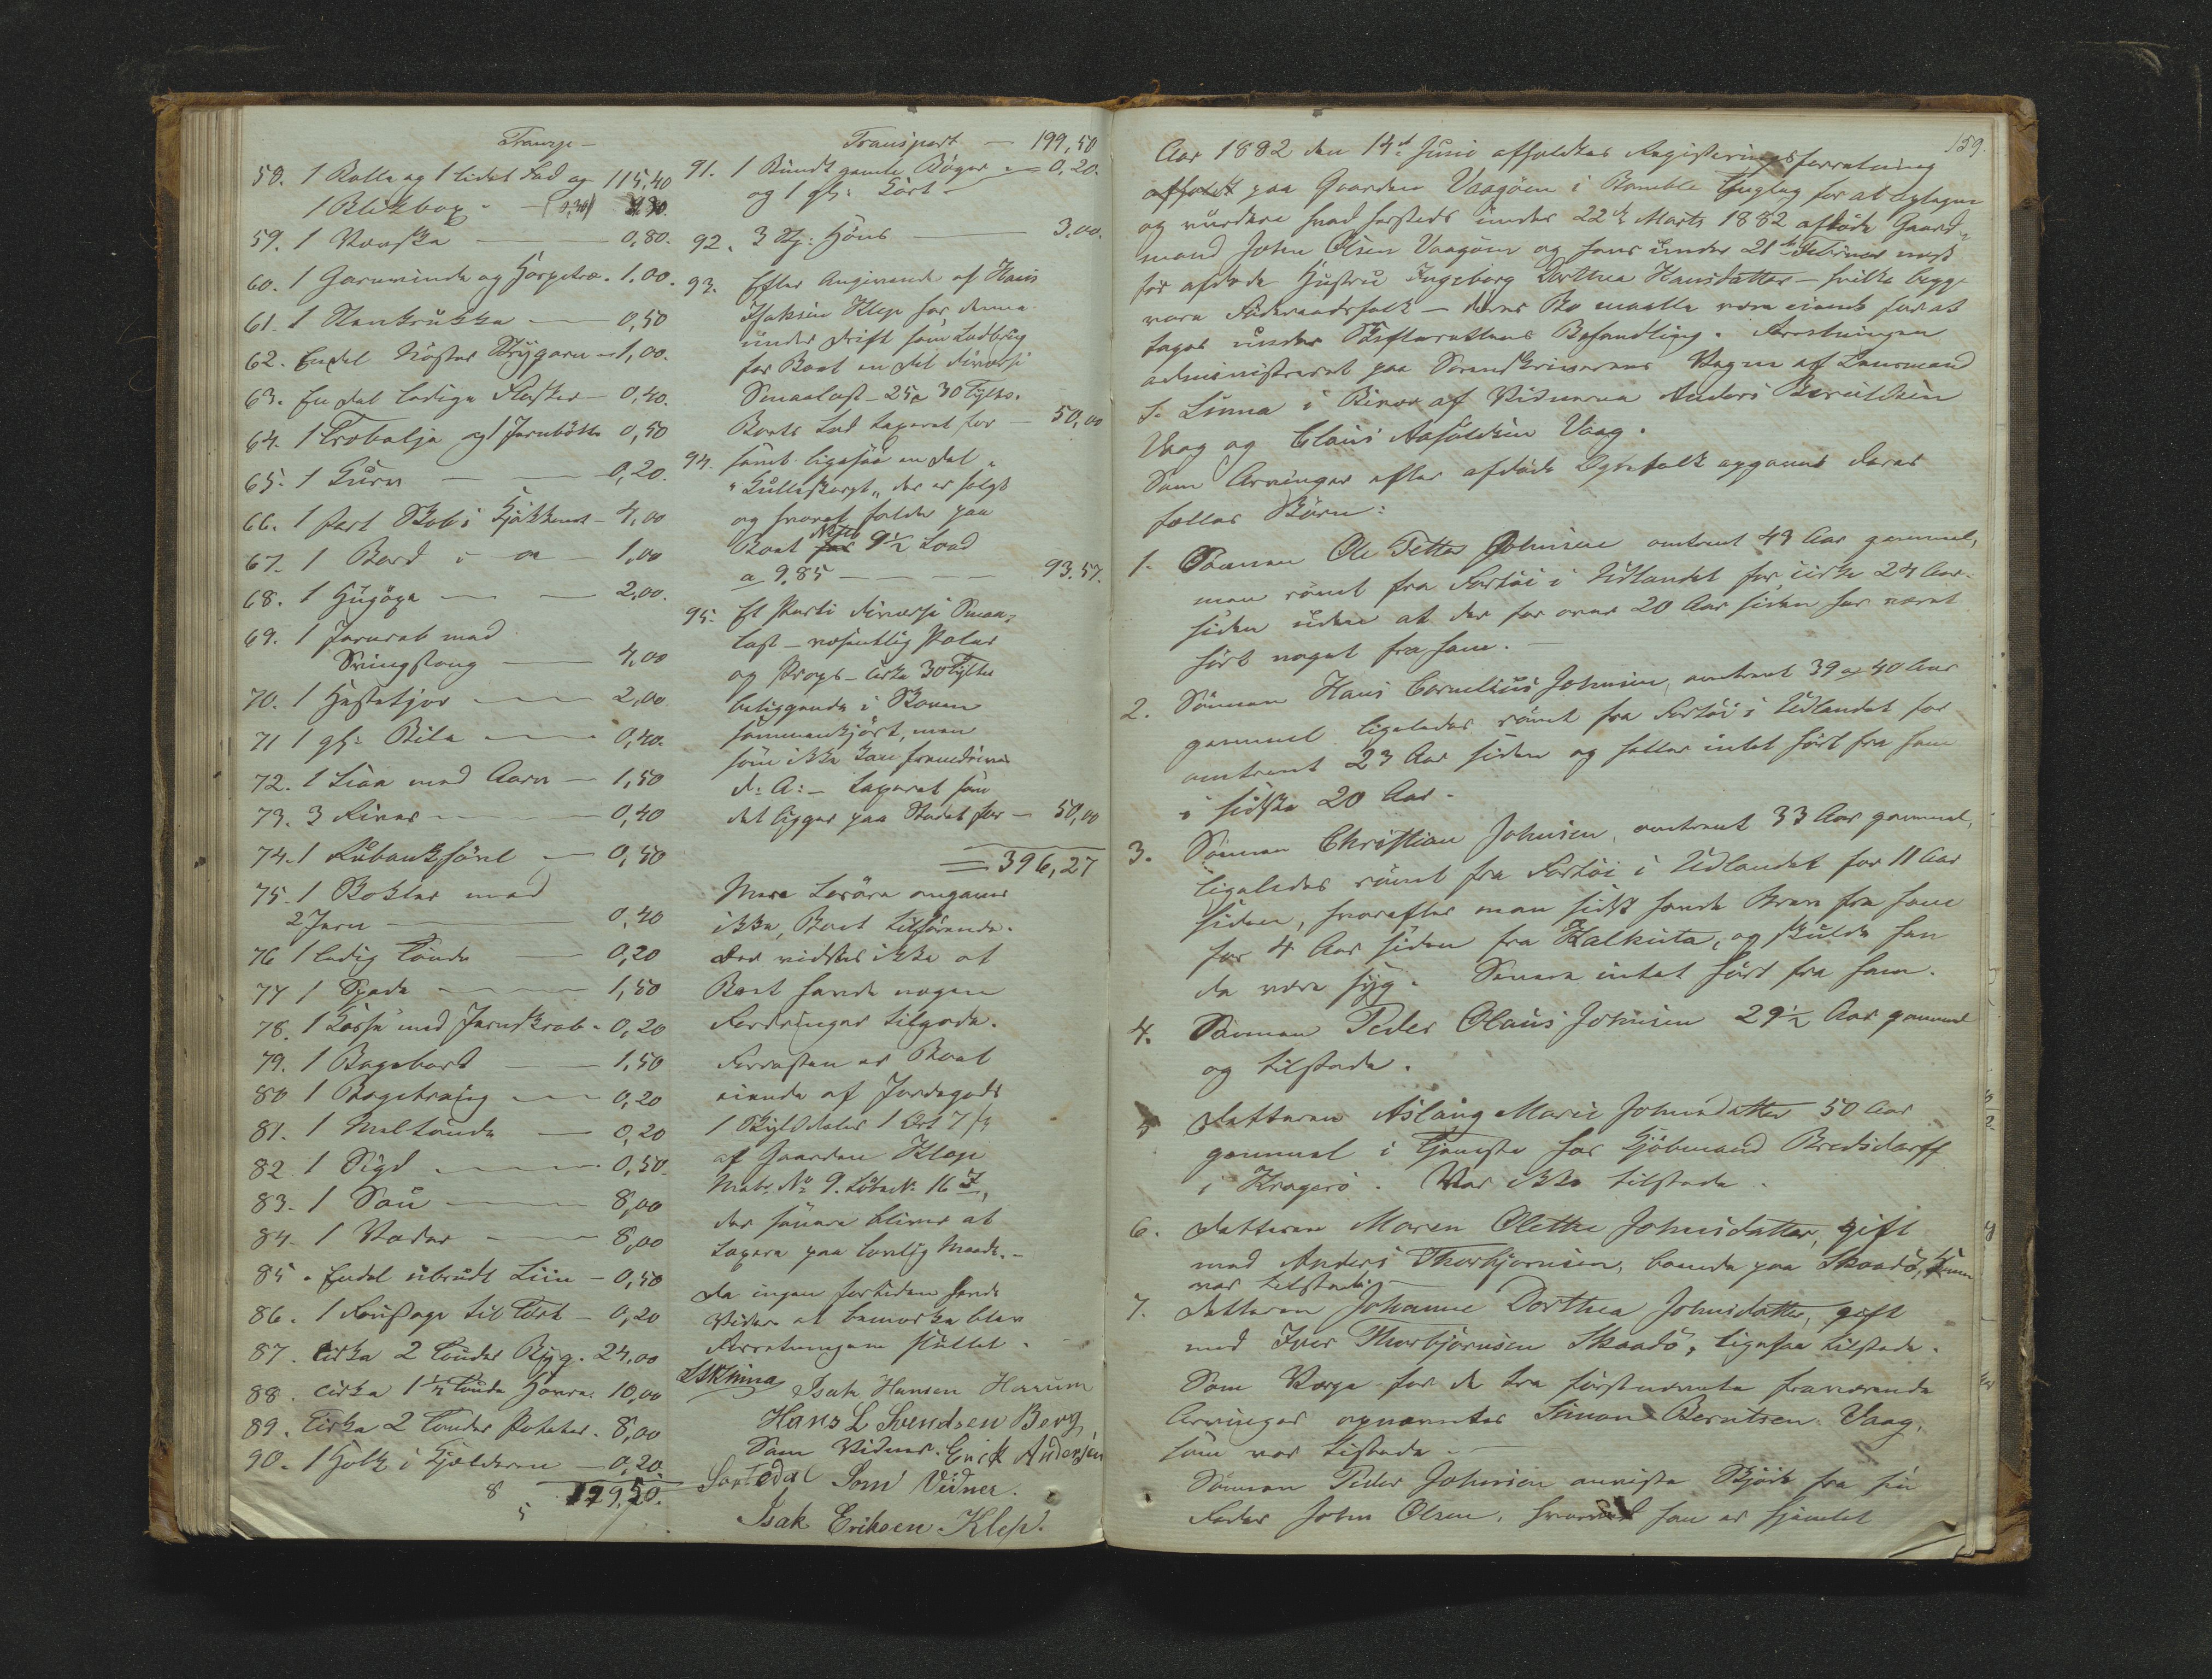 Transp –
58. 1 Balle og 1 lidet Fad og 115,40
1 Blikbox – (0,30)
59. 1 Væska — 0,80.
60. 1 Garnvinde og Haspetræ. 1,00.
61. 1 Stenkrukke — 0,50
62. Endel Nøster Strygarn – 1,00.
63. En del ledige Flasker – 0,40.
64. 1 Træbalje og 1 Jernbøtte 0,50
65. 1 Kurv — 0,20.
66. 1 fast Skab i Kjøkkenet – 4,00
67. 1 Bord i – 1,00
68. 1 Hugøxe — 2,00.
69. 1 Jernrab med
Svingstang — 4,00
70. 1 Hestetjor — 2,00
71 1 gl: Bile — 0,40.
72. 1 Liaa med Aarv — 1,50
73. 3 River — 0,40
74. 1 Rubankhøvl — 0,50
75. 1 Bolter med
2 Jern — 0,40
76 1 ledig Tønde — 0,20
77 1 Spade — 1,50
78. 1 Kasse med Jernskrab. 0,20
79. 1 Bagebord — 1,50
80 1 Bagetraug — 0,20
81. 1 Meltønde — 0,20
82 1 Sigd — 0,50
83. 1 Sau — 8,00
84. 1 Væder — 8,00
85. Endel ubrudt Liin – 0,50
86. 1 til – 0,20
87. Cirka 2 Tønder Byg. 24,00
88. Cirka 1½ Tønde Havre. 10,00
89. Cirka 2 Tønder Poteter. 8,00
90. 1 Holk i Kjelderen – 0,20.
199,50.
Transport — 199,50
91. 1 Bundt gamle Bøger — 0,20.
og 1 gl: Kart –
92. 3 St: Høns — 3,00.
93. Efter Angivende af Hans
Isaksen Klep har denne
under Drift som Ladbrug
for Boet en del diverse
Smaalast – 25 a 30 Tylter.
Boets Lod taxeret for — 50,00
94. samt ligesaa en del
"Kulleskorst" der er solgt
og hvoraf falder paa
Boet Netto 9½ Load
a 9,85 — 93.57.
95. Et Parti diverse Smaa-
last – væsentlig Pæler
og Props – cirka 30 Tylter
beliggende i Skoven
sammenkjørt, men
som ikke kan fremdrives
d: A: – taxeret som
det ligger paa Stedet for — 50,00
= 396,27
Mere Løsøre angaves
ikke, Boet tilhørende.
Der vidstes ikke at
Boet havde nogen
Fordringer tilgode.
Forresten er Boet
eiende af Jordegods
1 Skylddaler 1 Ort 7 ß
af Gaarden Klep
Matr. No 9. Løbe N: 16
der senere bliver at
taxere paa lovlig Maade. –
Da ingen fortiden havde
Videre at bemærke blev
Forretningen sluttet.
Isak Hansen
Hans L Svendsen Berg,
Som Vidner. Erick Andersen
Som Vidner.
Isak Eriksen Klep.
159.
Aar 1882 den 14d Juni afholdtes Registeringsforretning
afholdt paa Gaarden Vaagøen i Bamble Thinglag for at optegne
og vurdere hvad hersteds under 22de Marts 1882 afdøde Gaard-
mand John Olsen Vaagøen og hans under 21de Februar næst
før afdøde Hustru Ingeborg Dorthea Hansdatter – hvilke begge
vare Føderaadsfolk – deres Bo maatte være eiende for at
tages under Skifterettens Behandling. Forretningen
administreret paa Sorenskriverens Vegne af Lensmand
S. Linna i Bivær af Vidnerne Anders Beruldsen
Vaag og Claus Aasoldsen Vaag.
Som Arvinger efter afdøde Egtefolk opgaves deres
fælles Børn:
1. Sønnen Ole Petter Johnsen omtrent 43 Aar gammel,
men rømt fra Fartøi i Udlandet for cirka 24 Aar
siden uden at der for over 20 Aar siden har været
hørt noget fra ham.
2. Sønnen Hans Cornelius Johnsen, omtrent 39 a 40 Aar
gammel ligeledes rømt fra Fartøi i Udlandet for
omtrent 23 Aar siden og heller intet hørt fra ham
i sidste 20 Aar.
3. Sønnen Christian Johnsen, omtrent 33 Aar gammel,
ligeledes rømt fra Fartøi i Udlandet for 11 Aar
siden, hvorefter man sidst havde Brev fra ham
for 4 Aar siden fra Kalkuta, og skulde han
da være syg. Senere intet hørt fra ham.
4. Sønnen Peder Olaus Johnsen 29½ Aar gammel
og tilstede.
5 Datteren Aslaug Marie Johnsdatter 50 Aar
gammel i Tjeneste hos Kjøbmand Bredsdorff
i Kragerø. Var ikke tilstede.
6. Datteren Maren Olette Johnsdatter, gift
med Anders Thorbjørnsen, boende paa Skaadø,
var tilstede –
7. Datteren Johanne Dorthea Johnsdatter, gift
med Iver Thorbjørnsen Skaadø, ligesaa tilstede.
Som Værge for de tre førstnævnte fraværende
Arvinger opnævntes Simon Berntsen Vaag,
som var tilstede. –
Sønnen Peder Johnsen anviste Skjøde fra sin
Fader John Olsen, hvorved han er hjemlet